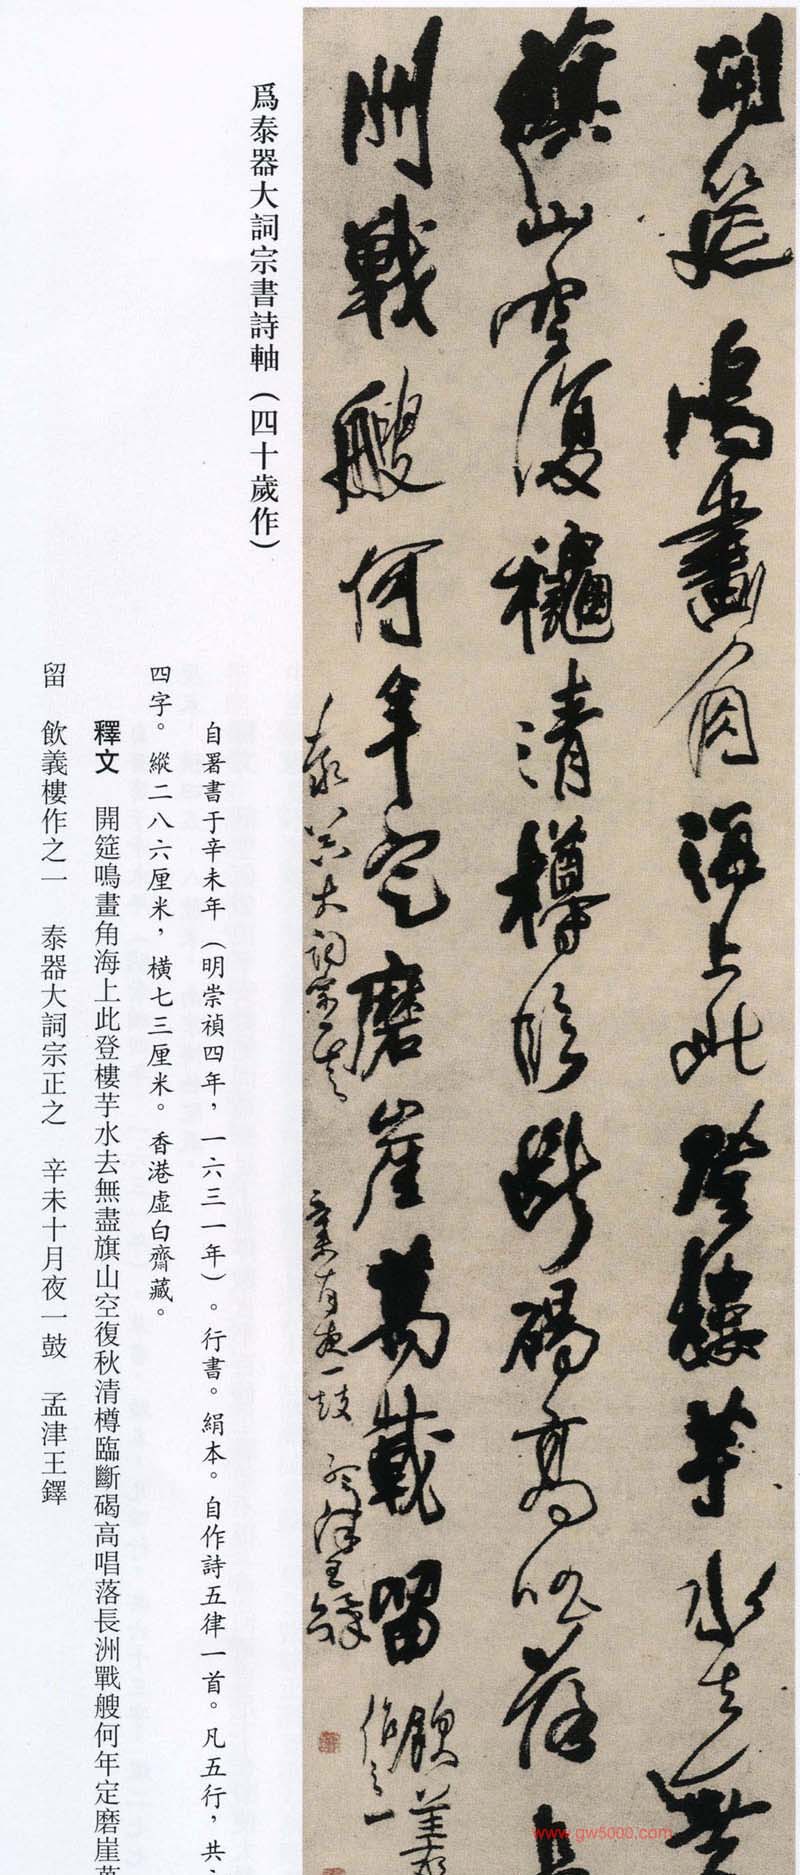 開筵鳴畫角海上此登樓芋水去無
旗山空復龝清樽臨斷碣高唱落長
洲戰艘何年定磨崖萬載留 飲義樓
作之一
泰器大詞宗正之 辛未十月夜一鼓 孟津王鐸
爲泰器大詞宗書詩軸（四十歲作）
自署書于辛未年（明崇禎四年，一六三一年）。行書。絹本。自作詩五律一首。凡五行，共
四字。縱二八六厘米，橫七三厘米。香港虛白齋藏。
釋文 開筵鳴畫角海上此登樓芋水去無盡旗山空復秋清樽臨斷碣高唱落長洲戰艘何年定磨崖萬
留 飲義樓作之一 泰器大詞宗正之 辛未十月夜一鼓 孟津王鐸
www.gw5000.com